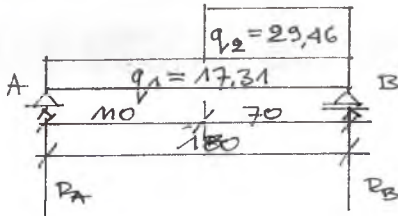 q2 = 29,46
A q1 = 17,31 B
110 70
180
RA RB